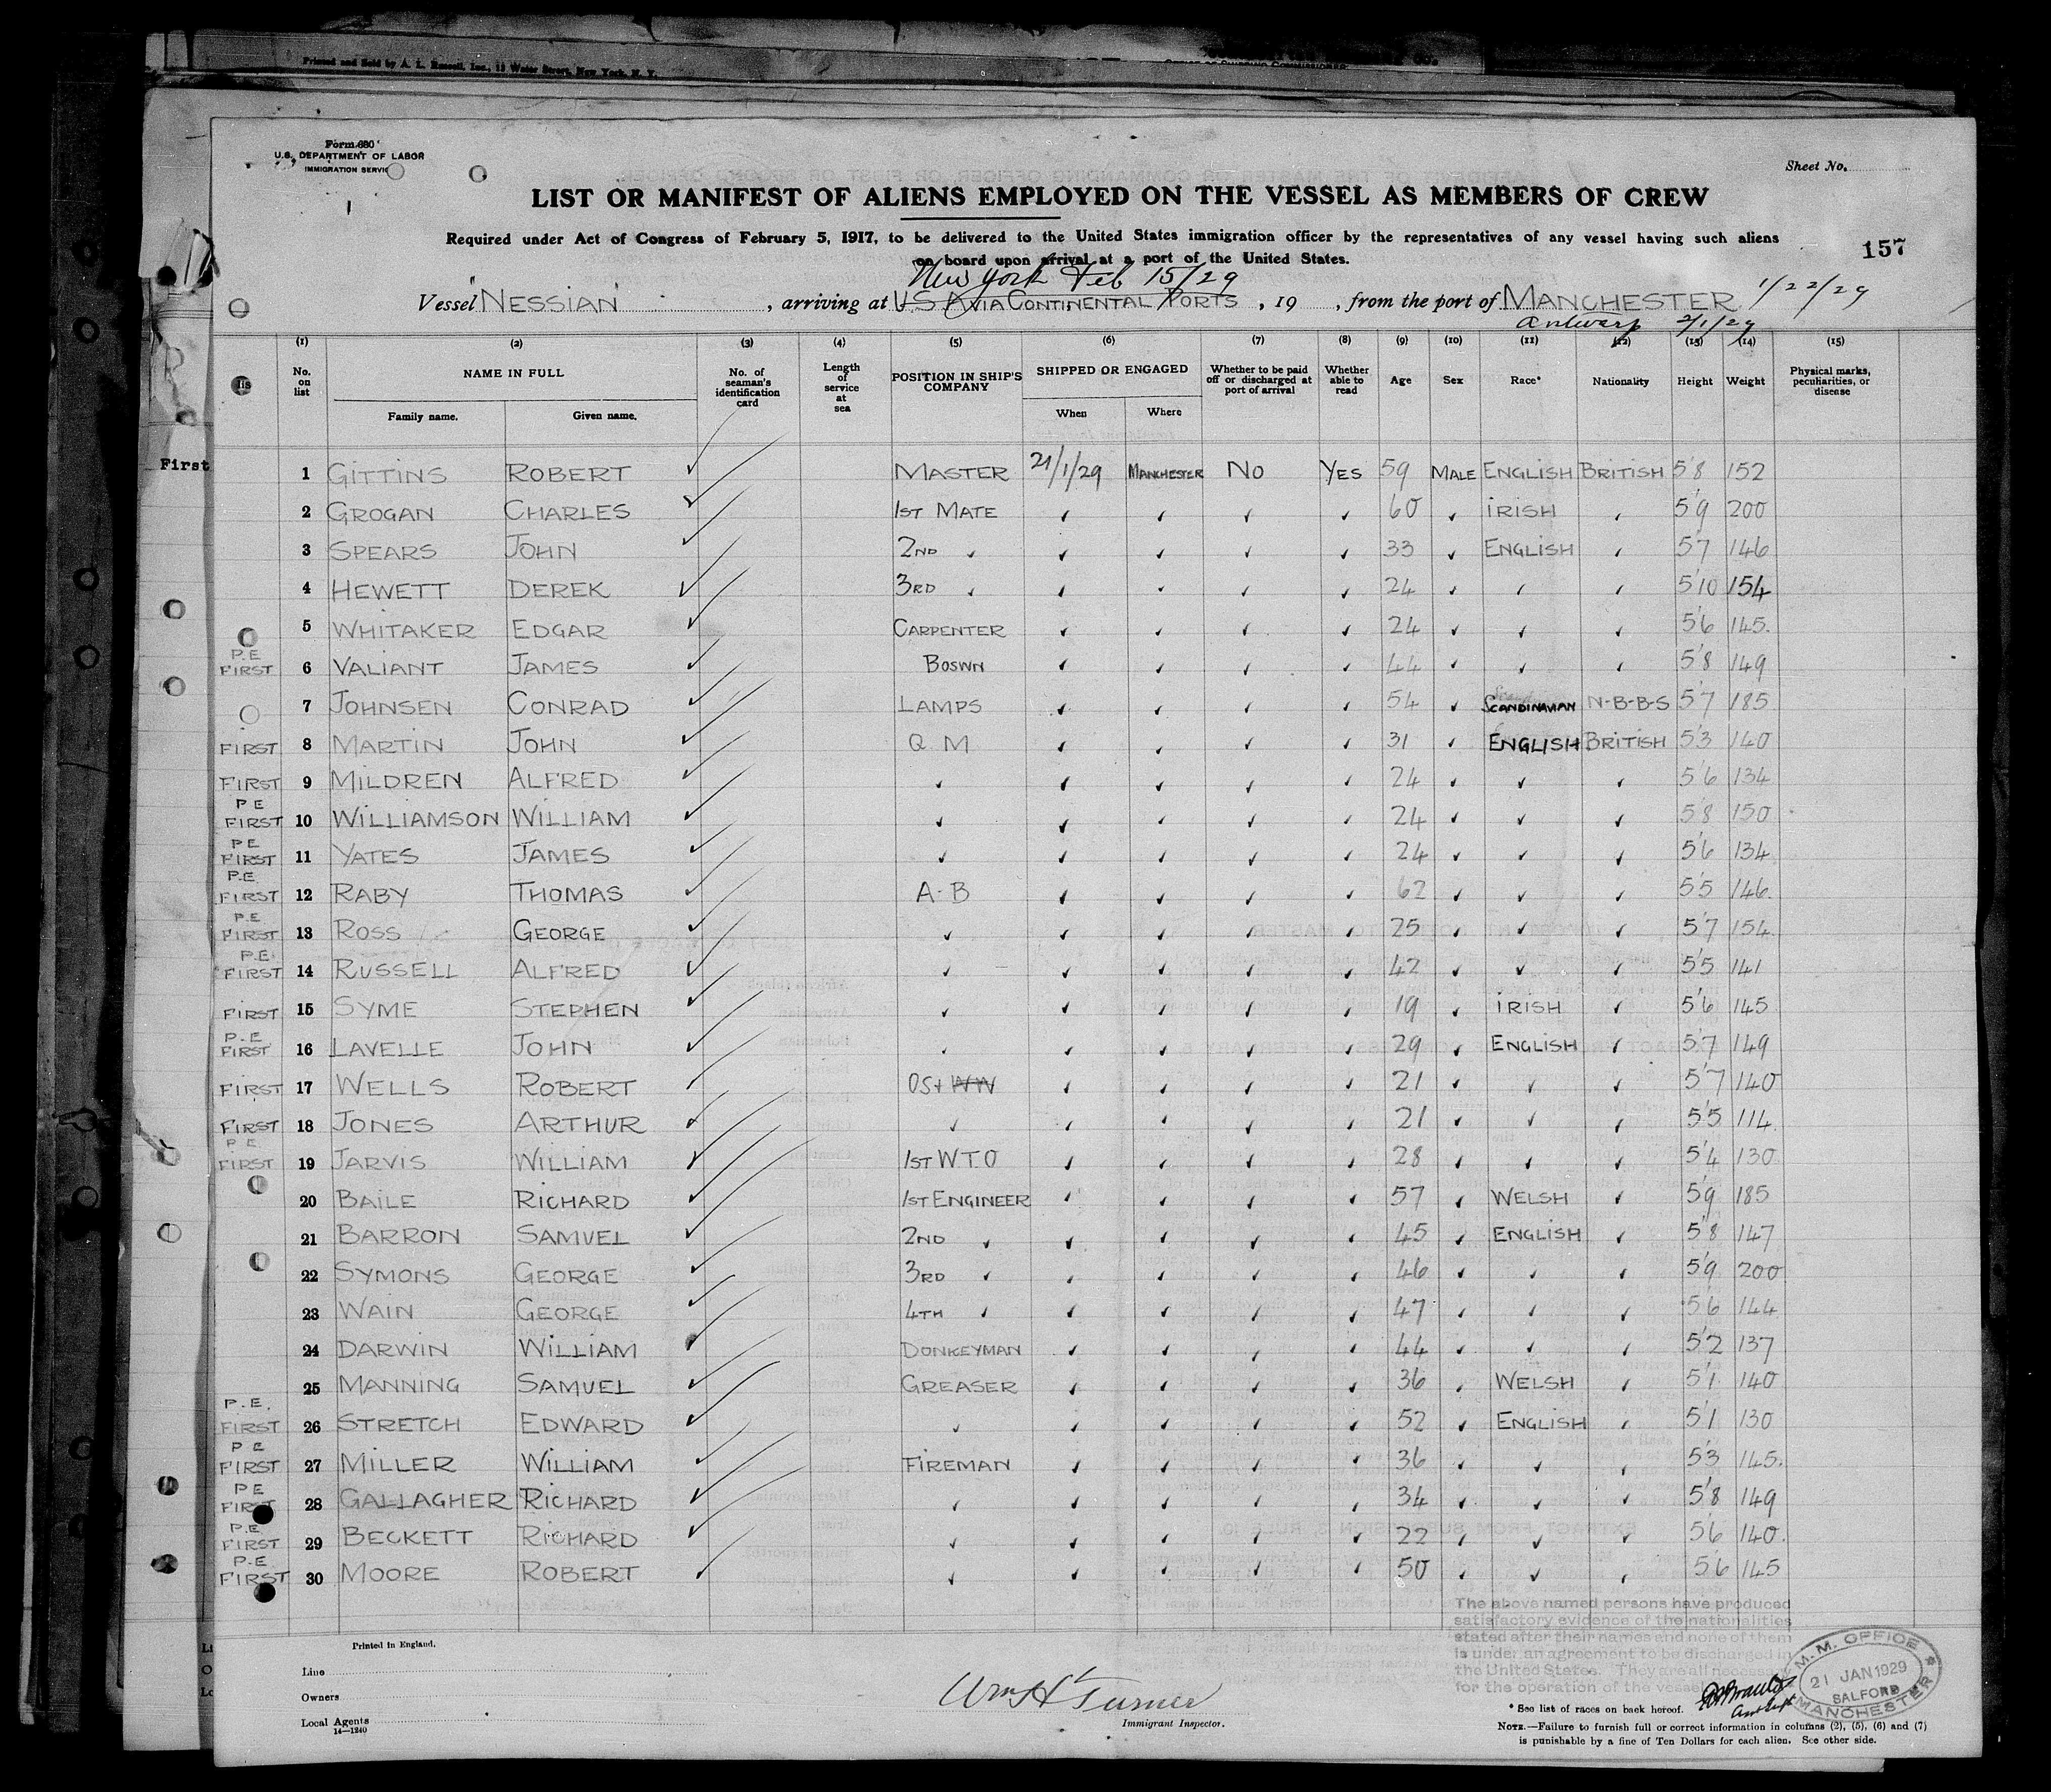 Printed and Sold by A. L. Russell, Inc., 19 Water Street, New York, N. Y.
Form 680
U.S. DEPARTMENT OF LABOR
IMMIGRATION SERVICE
Sheet No.
LIST OR MANIFEST OF ALIENS EMPLOYED ON THE VESSEL AS MEMBERS OF CREW
Required under Act of Congress of February 5, 1917, to be delivered to the United States immigration officer by the representatives of any vessel having such aliens
on board upon arrival at a port of the United States.
157
New York Feb 15/29
Vessel NESSIAN, arriving at U.S.A VIA CONTINENTAL PORTS, 19 , from the port of MANCHESTER 1/22/29
Antwerp 2/1/29
(1) (2) (3) (4) (5) (6) (7) (8) (9) (10) (11) (12) (13) (14) (15)
No. on list NAME IN FULL Family name. Given name. No. of seaman's identification card Length of service at sea POSITION IN SHIP'S COMPANY SHIPPED OR ENGAGED When Where Whether to be paid off or discharged at port of arrival Whether able to read Age Sex Race* Nationality Height Weight Physical marks, peculiarities, or disease
First 1 GITTINS ROBERT ✓ MASTER 21/1/29 MANCHESTER NO YES 59 MALE ENGLISH BRITISH 5'8 152
2 GROGAN CHARLES ✓ 1ST MATE ✓ ✓ ✓ ✓ 60 ✓ IRISH ✓ 5'9 200
3 SPEARS JOHN ✓ 2ND ✓ ✓ ✓ ✓ ✓ 33 ✓ ENGLISH ✓ 5'7 146
4 HEWETT DEREK ✓ 3RD ✓ ✓ ✓ ✓ ✓ 24 ✓ ✓ ✓ 5'10 154
5 WHITAKER EDGAR ✓ CARPENTER ✓ ✓ ✓ ✓ 24 ✓ ✓ ✓ 5'6 145.
P.E FIRST 6 VALIANT JAMES ✓ BOSWN ✓ ✓ ✓ ✓ 44 ✓ ✓ ✓ 5'8 149
7 JOHNSEN CONRAD ✓ LAMPS ✓ ✓ ✓ ✓ 54 ✓ SCANDINAVIAN N-B-B-S 5'7 185
FIRST 8 MARTIN JOHN ✓ Q M ✓ ✓ ✓ ✓ 31 ✓ ENGLISH BRITISH 5'3 140
FIRST 9 MILDREN ALFRED ✓ ✓ ✓ ✓ ✓ ✓ 24 ✓ ✓ ✓ 5'6 134
P E FIRST 10 WILLIAMSON WILLIAM ✓ ✓ ✓ ✓ ✓ ✓ 24 ✓ ✓ ✓ 5'8 150
P E FIRST 11 YATES JAMES ✓ ✓ ✓ ✓ ✓ ✓ 24 ✓ ✓ ✓ 5'6 134
P.E. FIRST 12 RABY THOMAS ✓ A-B ✓ ✓ ✓ ✓ 62 ✓ ✓ ✓ 5'5 146.
P E FIRST 13 ROSS GEORGE ✓ ✓ ✓ ✓ ✓ ✓ 25 ✓ ✓ ✓ 5'7 154
P.E FIRST 14 RUSSELL ALFRED ✓ ✓ ✓ ✓ ✓ ✓ 42 ✓ ✓ ✓ 5'5 141
FIRST 15 SYME STEPHEN ✓ ✓ ✓ ✓ ✓ ✓ 19 ✓ IRISH ✓ 5'6 145
P.E FIRST 16 LAVELLE JOHN ✓ ✓ ✓ ✓ ✓ ✓ 29 ✓ ENGLISH ✓ 5'7 149
FIRST 17 WELLS ROBERT ✓ OS+ WW ✓ ✓ ✓ ✓ 21 ✓ ✓ ✓ 5'7 140
FIRST 18 JONES ARTHUR ✓ ✓ ✓ ✓ ✓ ✓ 21 ✓ ✓ ✓ 5'5 114.
P E FIRST 19 JARVIS WILLIAM ✓ 1ST W.T.O ✓ ✓ ✓ ✓ 28 ✓ ✓ ✓ 5'4 130
20 BAILE RICHARD ✓ 1ST ENGINEER ✓ ✓ ✓ ✓ 57 ✓ WELSH ✓ 5'9 185
21 BARRON SAMUEL ✓ 2ND ✓ ✓ ✓ ✓ ✓ 45 ✓ ENGLISH ✓ 5'8 147
22 SYMONS GEORGE ✓ 3RD ✓ ✓ ✓ ✓ ✓ 46 ✓ ✓ ✓ 5'9 200
23 WAIN GEORGE ✓ 4TH ✓ ✓ ✓ ✓ ✓ 47 ✓ ✓ ✓ 5'6 144
24 DARWIN WILLIAM ✓ DONKEYMAN ✓ ✓ ✓ ✓ 44 ✓ ✓ ✓ 5'2 137
25 MANNING SAMUEL ✓ GREASER ✓ ✓ ✓ ✓ 36 ✓ WELSH ✓ 5'1 140
P.E. FIRST 26 STRETCH EDWARD ✓ ✓ ✓ ✓ ✓ ✓ 52 ✓ ENGLISH ✓ 5'1 130
P E FIRST 27 MILLER WILLIAM ✓ FIREMAN ✓ ✓ ✓ ✓ 36 ✓ ✓ ✓ 5'3 145.
P E FIRST 28 GALLAGHER RICHARD ✓ ✓ ✓ ✓ ✓ ✓ 34 ✓ ✓ ✓ 5'8 149
P.E. FIRST 29 BECKETT RICHARD ✓ ✓ ✓ ✓ ✓ ✓ 22 ✓ ✓ ✓ 5'6 140.
P.E FIRST 30 MOORE ROBERT ✓ ✓ ✓ ✓ ✓ ✓ 50 ✓ ✓ ✓ 5'6 145
The above named persons have produced
satisfactory evidence of the nationalities
stated after their names and none of them
is under an agreement to be discharged in
the United States. They are all necessary
for the operation of the vessel
Printed in England.
Line
Owners
Local Agents
14—1240
Wm H Turner
Immigrant Inspector.
M.M. OFFICE
21 JAN 1929
SALFORD
MANCHESTER
* See list of races on back hereof.
NOTE.—Failure to furnish full or correct information in columns (2), (5), (6) and (7)
is punishable by a fine of Ten Dollars for each alien. See other side.